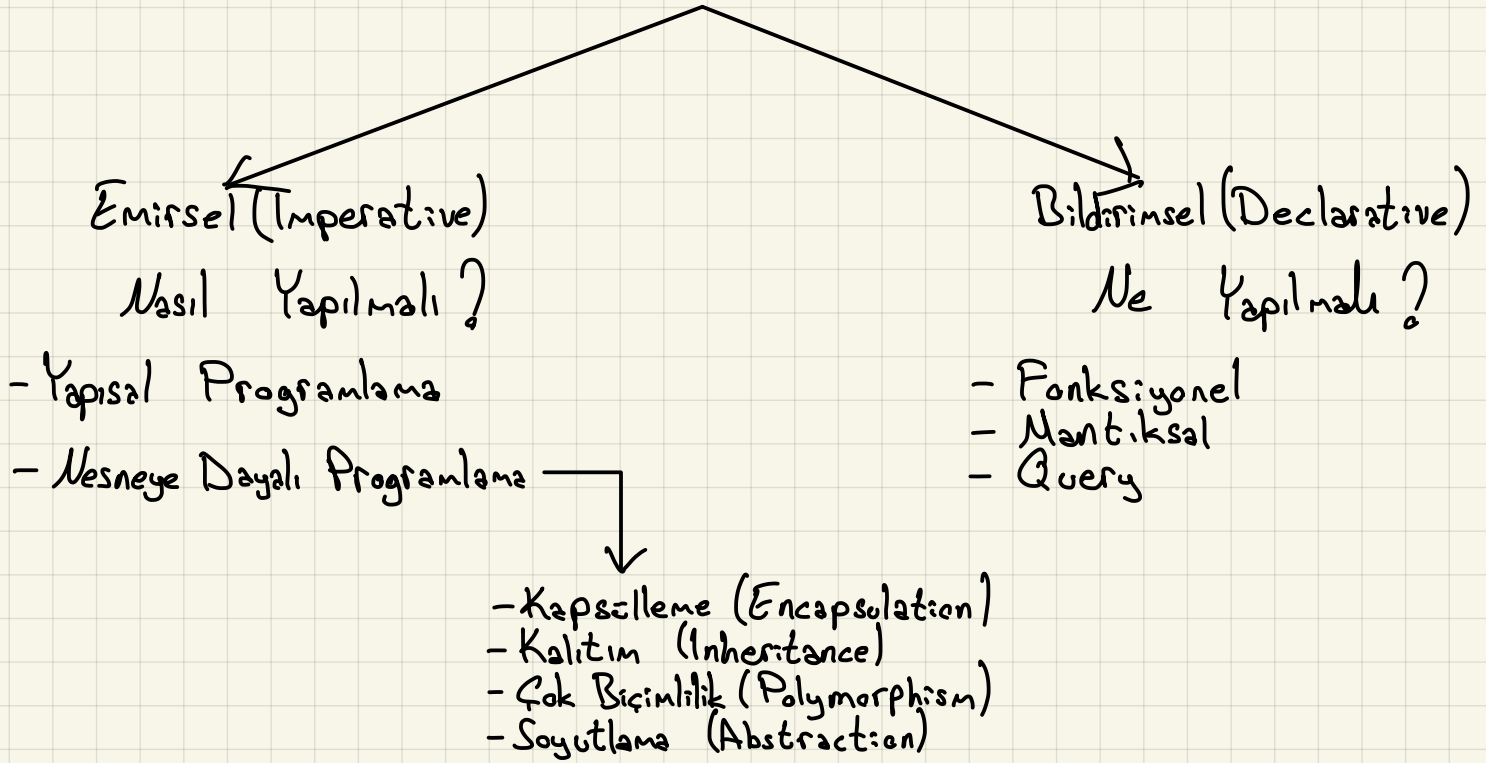 Emirsel (Imperative)
Nasıl Yapılmalı?
- Yapısal Programlama
- Nesneye Dayalı Programlama
Bildirimsel (Declarative)
Ne Yapılmalı?
- Fonksiyonel
- Mantıksal
- Query
- Kapsülleme (Encapsulation)
- Kalıtım (Inheritance)
- Çok Biçimlilik (Polymorphism)
- Soyutlama (Abstraction)